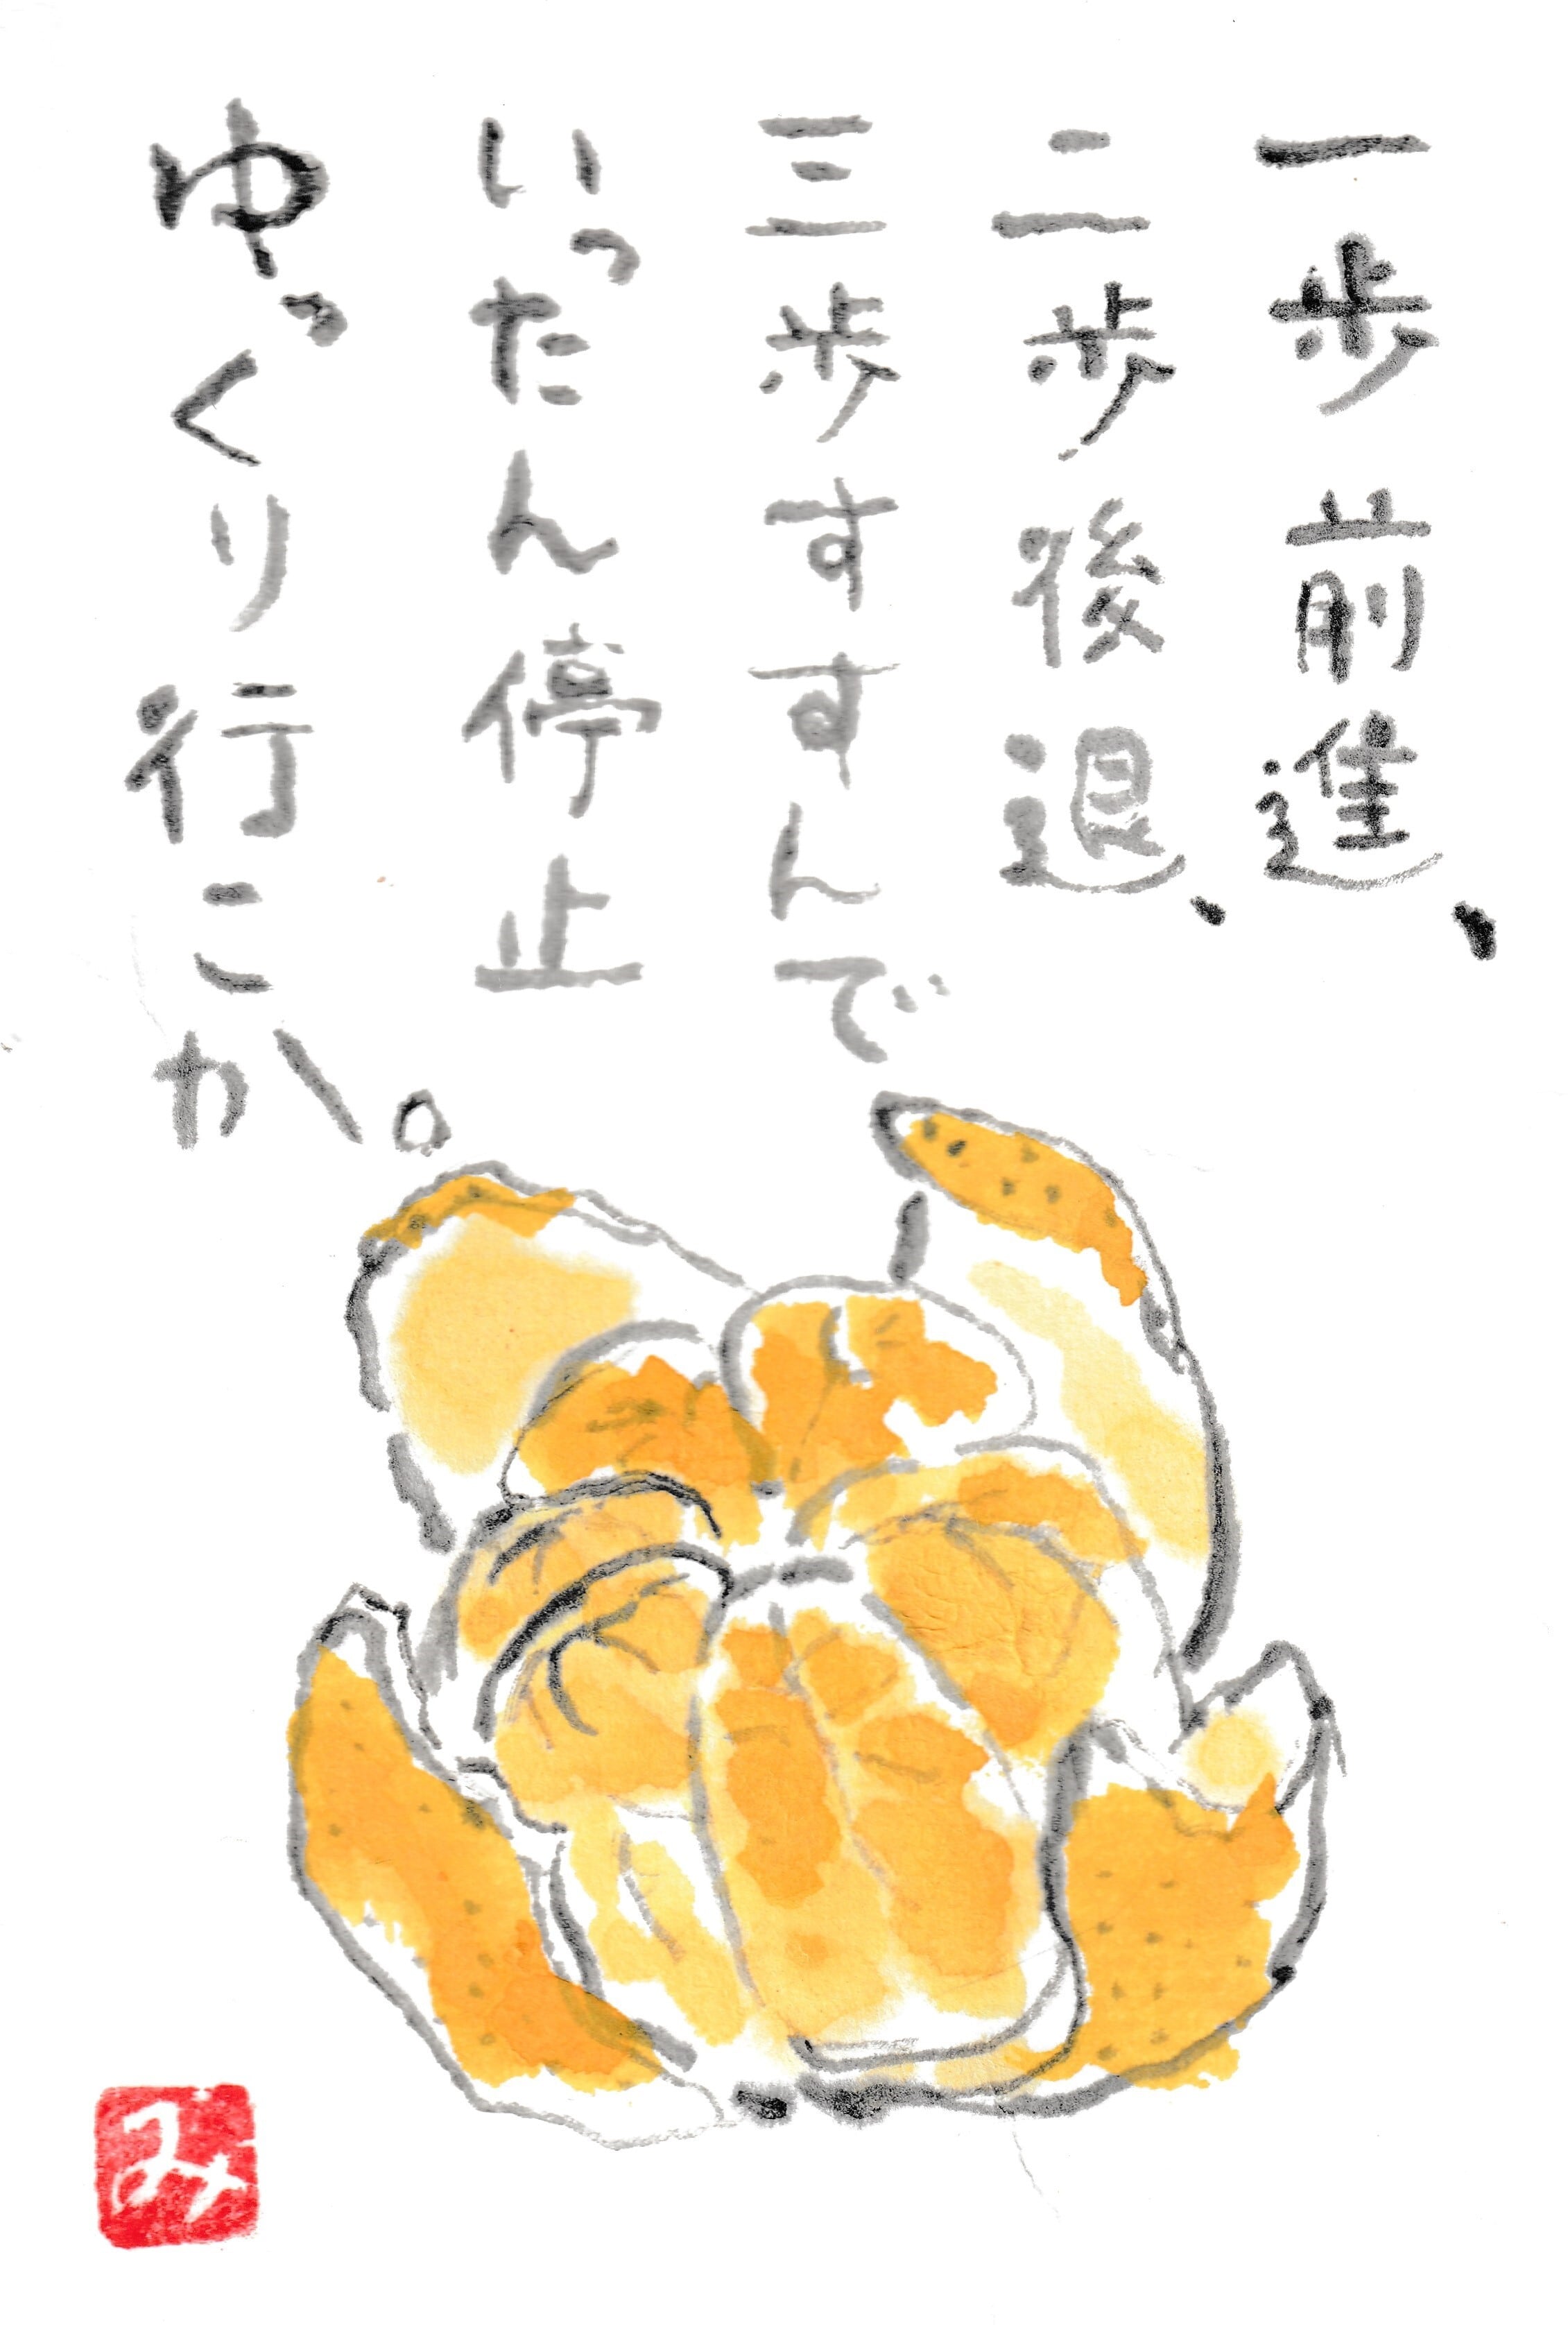 一歩前進、
二歩後退、
三歩すすんで
いったん停止
ゆっくり行こか。
み